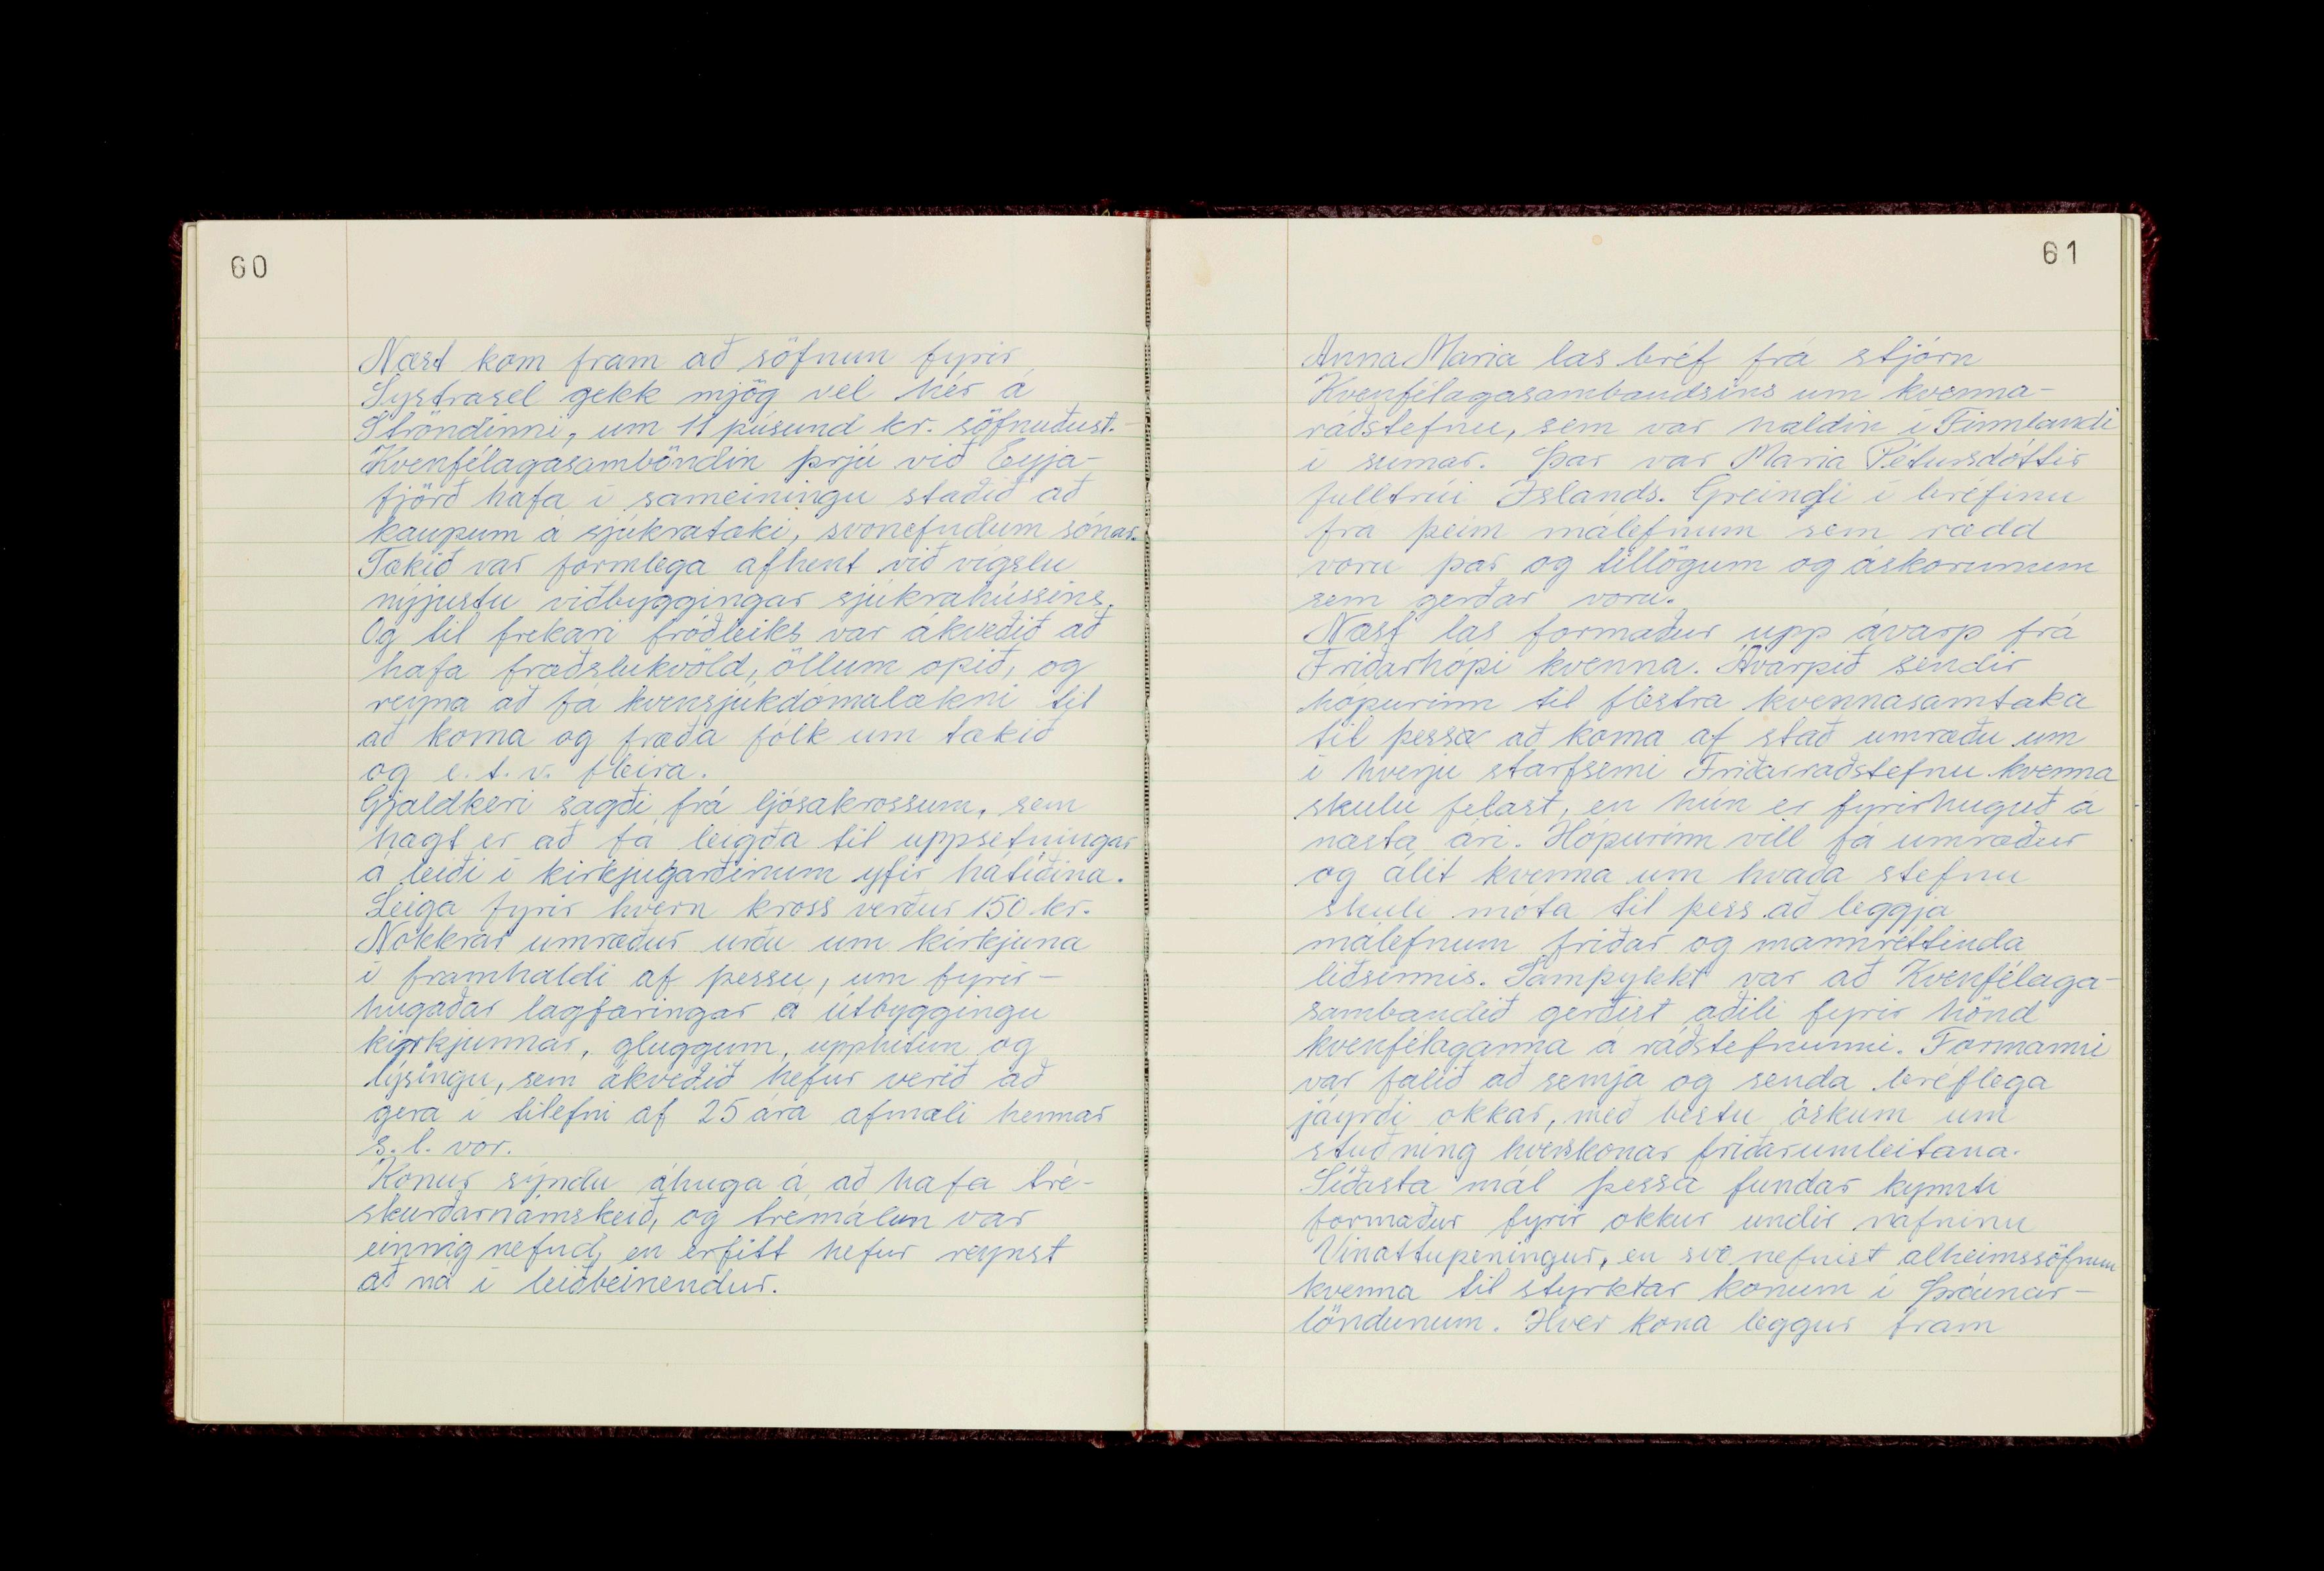 60
Næst kom fram að söfnun fyrir
Systrasel gekk mjög vel hér á
Ströndinni, um 11 þúsund kr. söfnuðust.
Kvenfélagasamböndin þrjú við Eyja-
fjörð hafa í sameiningu staðið að
kaupum á sjúkratæki, svonefndum sónar.
Tækið var formlega afhent við vígslu
nýjustu viðbyggingar sjúkrahússins.
Og til frekari fróðleiks var ákveðið að
hafa fræðslukvöld, öllum opið, og
reyna að fá kvensjúkdómalækni til
að koma og fræða fólk um tækið
og e.t.v. fleira.
Gjaldkeri sagði frá ljósakrossum, sem
hægt er að fá leigða til uppsetningar
á leiði í kirkjugarðinum yfir hátíðina.
Leiga fyrir hvern kross verður 150 kr.
Nokkrar umræður urðu um kirkjuna
í framhaldi af þessu, um fyrir-
hugaðar lagfæringar á útbyggingu
kirkjunnar, gluggum, upphitun og
lýsingu, sem ákveðið hefur verið að
gera í tilefni af 25 ára afmæli hennar
s.l. vor.
Konur sýndu áhuga á að hafa tré-
skurðarnámskeið, og trémálun var
einnig nefnd, en erfitt hefur reynst
að ná í leiðbeinendur.
61
Anna María las bréf frá stjórn
Kvenfélagasambandsins um kvenna-
ráðstefnu, sem var haldin í Finnlandi
í sumar. Þar var María Pétursdóttir
fulltrúi Íslands. Greindi í bréfinu
frá þeim málefnum sem rædd
voru þar og tillögum og áskorunum
sem gerðar voru.
Næst las formaður upp ávarp frá
Friðarhópi kvenna. Ávarpið sendir
hópurinn til flestra kvennasamtaka
til þessa að koma af stað umræðu um
í hverju starfsemi Friðarráðstefnu kvenna
skulu felast, en hún er fyrirhuguð á
næsta ári. Hópurinn vill fá umræður
og álit kvenna um hvaða stefnu
skuli móta til þess að leggja
málefnum friðar og mannréttinda
liðsinnis. Samþykkt var að Kvenfélaga-
sambandið gerðist aðili fyrir hönd
kvenfélaganna á ráðstefnunni. Formanni
var falið að semja og senda bréflega
jáyrði okkar, með bestu óskum um
stuðning hverskonar friðarumleitana.
Síðasta mál þessa fundar kynnti
formaður fyrir okkur undir nafninu
Vináttupeningur, en svo nefnist alheimssöfnun
kvenna til styrktar konum í Þróunar-
löndunum. Hver kona leggur fram